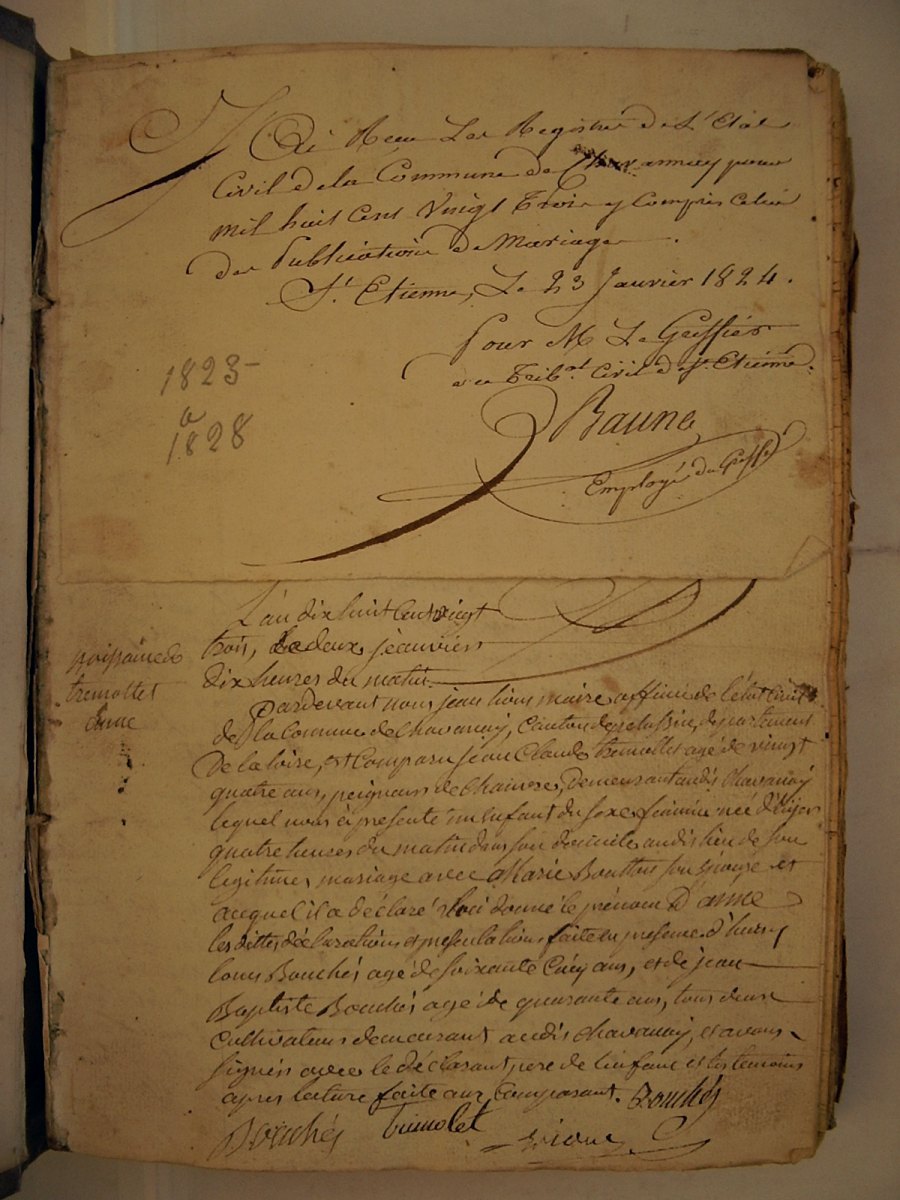 J'ai Reçu Les Registres de L'Etat
Civil de la Commune de Chavannay pour
mil huit cent Vingt Trois y Compris Celui
des Publications de Mariage
St. Etienne, Le 23 Janvier 1824.
Pour M Le Greffier
du Tribal. Civil de St. Etienne.
Baune
Employé du Greffe
1823 -
a
1828
L'an dix huit cent vingt
trois, Le deux jeanvier
dix heures du matin
naissance de
tremollet
anne
Pardevant nous jean lions maire officié de l'état civil
de la Commune de chavanay, Canton de pelussin, département
De la loire, est Comparu jean Claude tremollet agé de vingt
quatre ans, peigneur de Chanvres, Demeurant audis Chavanay
lequel nous a présenté un enfant du sexe féminin née d'hijer
quatre heures du matin dans son domicile audis lieu de son
legitime mariage avec Marie Bouttou son épouse et
auquel il a déclaré donné le prénom D'anne
les dittes déclarations et presentations faite en presence d'
louis Bouchés agé de soixante Cinq ans, et de jean
Baptiste Bouchés agé de quarante ans, tous deux
Cultivateurs demeurant audis chavanay, et avons
signés avec le déclarant, pere de l'enfant et les temoins
apres lecture faite aux Comparant. Bouchés
Bouchés trémolet Lions